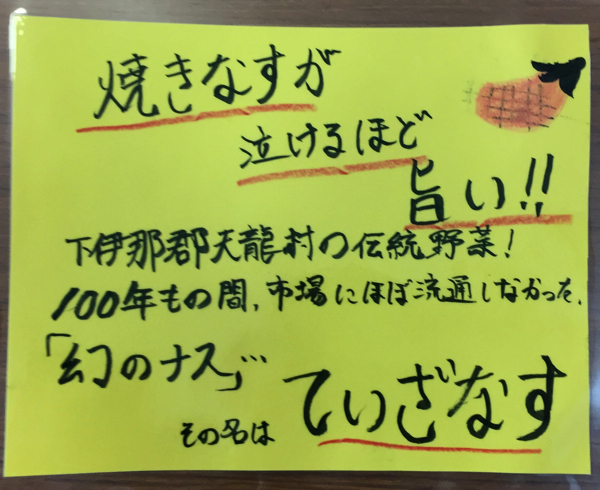 焼きなすが
泣けるほど
旨い!!
下伊那郡天龍村の伝統野菜!
100年もの間,市場にほぼ流通しなかった.
「幻のナス」…
その名は ていざなす